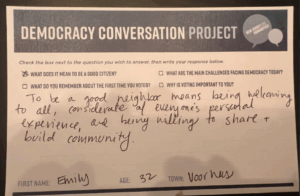 DEMOCRACY CONVERSATION PROJECT
Check the box next to the question you wish to answer, then write your response below.
WHAT DOES IT MEAN TO BE A GOOD CITIZEN?
WHAT ARE THE MAIN CHALLENGES FACING DEMOCRACY TODAY?
WHAT DO YOU REMEMBER ABOUT THE FIRST TIME YOU VOTED?
WHY IS VOTING IMPORTANT TO YOU?
To be a good neighbor means being welcoming
to all, considerate of everyone's personal
experience, and being willing to share +
build community.
FIRST NAME: Emily AGE: 32 TOWN: Voorhees